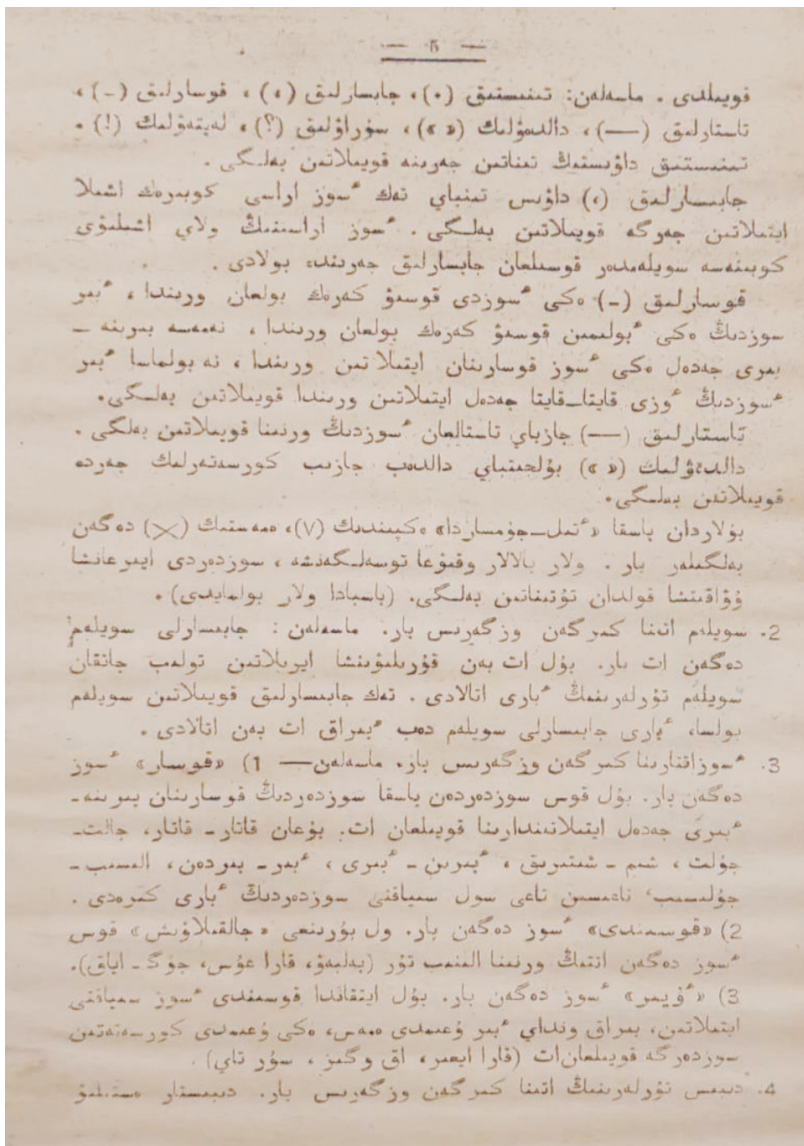 — 5 —
قويىلدى . ماسەلەن: تىنىستىق (•)، جابسارلىق (،)، قوسارلىق (-) ،
تاستارلىق (—)، دالدەۋلىك (« »)، سۇراۋلىق (؟)، لەپتەۋلىك (!) .
تىنىستىق داۋىستىڭ تىناتىن جەرىنە قويىلاتىن بەلگى .
جابسارلىق (،) داۋىس تىنباي تەك ٴسوز اراسى كوبىرەك اشىلا
ايتىلاتىن جەرگە قويىلاتىن بەلگى . ٴسوز اراسىنىڭ ولاي اشىلىۋى
كوبىنەسە سويلەمدەر قوسىلعان جابسارلىق جەرىندە بولادى .
قوسارلىق (-) ەكى ٴسوزدى قوسىۋ كەرەك بولعان ورىندا ، ٴبىر
سوزدىڭ ەكى ٴبولىمىن قوسىۋ كەرەك بولعان ورىندا ، نەمەسە بىرىنە -
بىرى جەدەل ەكى ٴسوز قوسارىنان ايتىلاتىن ورىندا ، نە بولماسا ٴبىر
ٴسوزدىڭ ٴوزى قايتا-قايتا جەدەل ايتىلاتىن ورىندا قويىلاتىن بەلگى.
تاستارلىق (—) جازباي تاستالعان ٴسوزدىڭ ورنىنا قويىلاتىن بەلگى .
دالدەۋلىك (« ») بۇلجىتباي دالدەپ جازىپ كورسەتەرلىك جەردە
قويىلاتىن بەلگى.
بۇلاردان باسقا «ٴتىل-جۇمساردا» ەكپىندىك (٧)، ەمەستىك (×) دەگەن
بەلگىلەر بار . ولار بالالار وقىۋعا توسەلگەنشە ، سوزدەردى ايىرعانشا
ۋۋاقىتشا قولدان تۇتىناتىن بەلگى. (باسبادا ولار بولمايدى) .
2. سويلەم اتىنا كىرگەن وزگەرىس بار. ماسەلەن : جابسارلى سويلەم
دەگەن ات بار. بۇل ات بەن قۇرىلىۋىنشا ايرىلاتىن تولەپ جاتقان
سويلەم تۇرلەرىنىڭ ٴبارى اتالادى . تەك جابسارلىق قويىلاتىن سويلەم
بولسا، ٴبارى جابسارلى سويلەم دەپ ٴبىراق ات بەن اتالادى .
3. ٴسوزاقتارىنا كىرگەن وزگەرىس بار. ماسەلەن— 1) «قوسار» ٴسوز
دەگەن بار. بۇل قوس سوزدەردەن باسقا سوزدەردىڭ قوسارىنان بىرىنە-
ٴبىرى جەدەل ايتىلاتىندارىنا قويىلعان ات. بۇعان قاتار- قاتار، جالت-
جۇلت ، شىم - شىتىرىق ، ٴبىرىن - ٴبىرى ، ٴبىر- بىردەن، الىسىپ -
جۇلىسىپ، تاعىسىن تاعى سول سىياقتى سوزدەردىڭ ٴبارى كىرەدى .
2) «قوسىمدى» ٴسوز دەگەن بار. ول بۇرىنعى «جالقىلاۋىش» قوس
ٴسوز دەگەن اتتىڭ ورنىنا الىنىپ تۇر (بەلبەۋ، قارا عۇس، جۇگ- اياق).
3) «ٴۇيىر» ٴسوز دەگەن بار. بۇل ايتقاندا قوسىمدى ٴسوز سىياقتى
ايتىلاتىن، بىراق ونداي ٴبىر ۇعىمدى ەمەس، ەكى ۇعىمدى كورسەتەتىن
سوزدەرگە قويىلعان ات (قارا ايعىر، اق وگىز ، سۇر تاي) .
4. دىبىس تۇرلەرىنىڭ اتىنا كىرگەن وزگەرىس بار. دىبىستار ەستىلىۋ